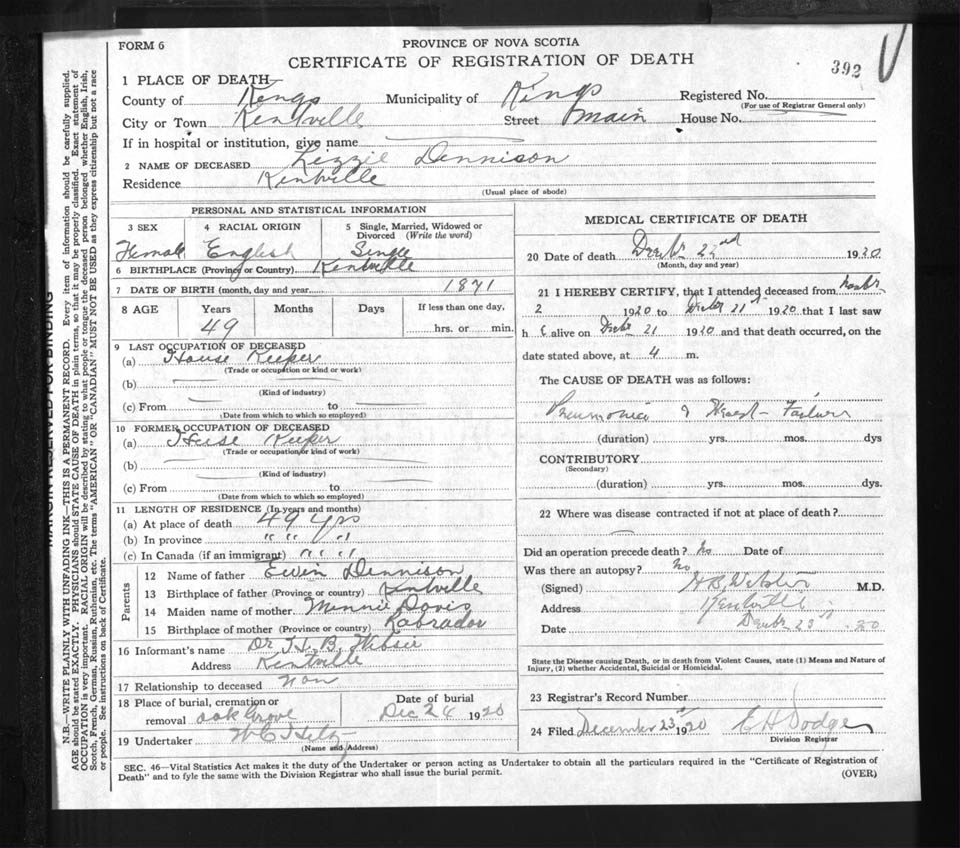 FORM 6
PROVINCE OF NOVA SCOTIA
CERTIFICATE OF REGISTRATION OF DEATH
392
1 PLACE OF DEATH
County of Kings Municipality of Kings Registered No.
(For use of Registrar General only)
City or Town Kentville Street Main House No.
If in hospital or institution, give name
2 NAME OF DECEASED Lizzie Dennison
Residence Kentville
(Usual place of abode)
PERSONAL AND STATISTICAL INFORMATION
3 SEX 4 RACIAL ORIGIN 5 Single, Married, Widowed or
Divorced (Write the word)
Female English Single
6 BIRTHPLACE (Province or Country) Kentville
7 DATE OF BIRTH (month, day and year) 1871
8 AGE Years Months Days If less than one day,
49 hrs. or min.
9 LAST OCCUPATION OF DECEASED
(a) House Keeper
(Trade or occupation or kind or work)
(b)
(Kind of industry)
(c) From to
(Date from which to which so employed)
10 FORMER OCCUPATION OF DECEASED
(a) House Keeper
(Trade or occupation or kind of work)
(b)
(Kind of industry)
(c) From to
(Date from which to which so employed)
11 LENGTH OF RESIDENCE (In years and months)
(a) At place of death 49 yrs
(b) In province " " "
(c) In Canada (if an immigrant) " " "
Parents
12 Name of father Dennison
13 Birthplace of father (Province or country) Kentville
14 Maiden name of mother Minnie Davis
15 Birthplace of mother (Province or country) Labrador
16 Informant's name Dr H. B. Webster
Address Kentville
17 Relationship to deceased Non
18 Place of burial, cremation or Date of burial
removal Oak Grove Dec 24 1920
19 Undertaker
(Name and Address)
MEDICAL CERTIFICATE OF DEATH
20 Date of death Decbr 22nd 1920
(Month, day and year)
21 I HEREBY CERTIFY, that I attended deceased from
2 1920 to Decbr 21st 1920 that I last saw
h e alive on Decbr 21 1920 and that death occurred, on the
date stated above, at 4 m.
The CAUSE OF DEATH was as follows:
Pneumonia & Heart Failure
(duration) yrs. mos. dys
CONTRIBUTORY
(Secondary)
(duration) yrs. mos. dys.
22 Where was disease contracted if not at place of death?
Did an operation precede death? No Date of
Was there an autopsy? No
(Signed) H B Webster M.D.
Address Kentville
Date Decbr 23rd 20
State the Disease causing Death, or in death from Violent Causes, state (1) Means and Nature of
Injury, (2) whether Accidental, Suicidal or Homicidal.
23 Registrar's Record Number
24 Filed December 23rd 1920 E H Dodge
Division Registrar
SEC. 46—Vital Statistics Act makes it the duty of the Undertaker or person acting as Undertaker to obtain all the particulars required in the "Certificate of Registration of
Death" and to fyle the same with the Division Registrar who shall issue the burial permit.
(OVER)
MARGIN RESERVED FOR BINDING
N.B.—WRITE PLAINLY WITH UNFADING INK—THIS IS A PERMANENT RECORD. Every item of information should be carefully supplied.
AGE should be stated EXACTLY. PHYSICIANS should STATE CAUSE OF DEATH in plain terms, so that it may be properly classified. Exact statement of
OCCUPATION is very important. RACIAL ORIGIN will be described by stating to what people or tongue the deceased person belonged whether English, Irish,
Scotch, French, German, Russian, Ruthenian, etc. The terms "AMERICAN" OR "CANADIAN" MUST NOT BE USED as they express citizenship but not a race
or people. See instructions on back of Certificate.